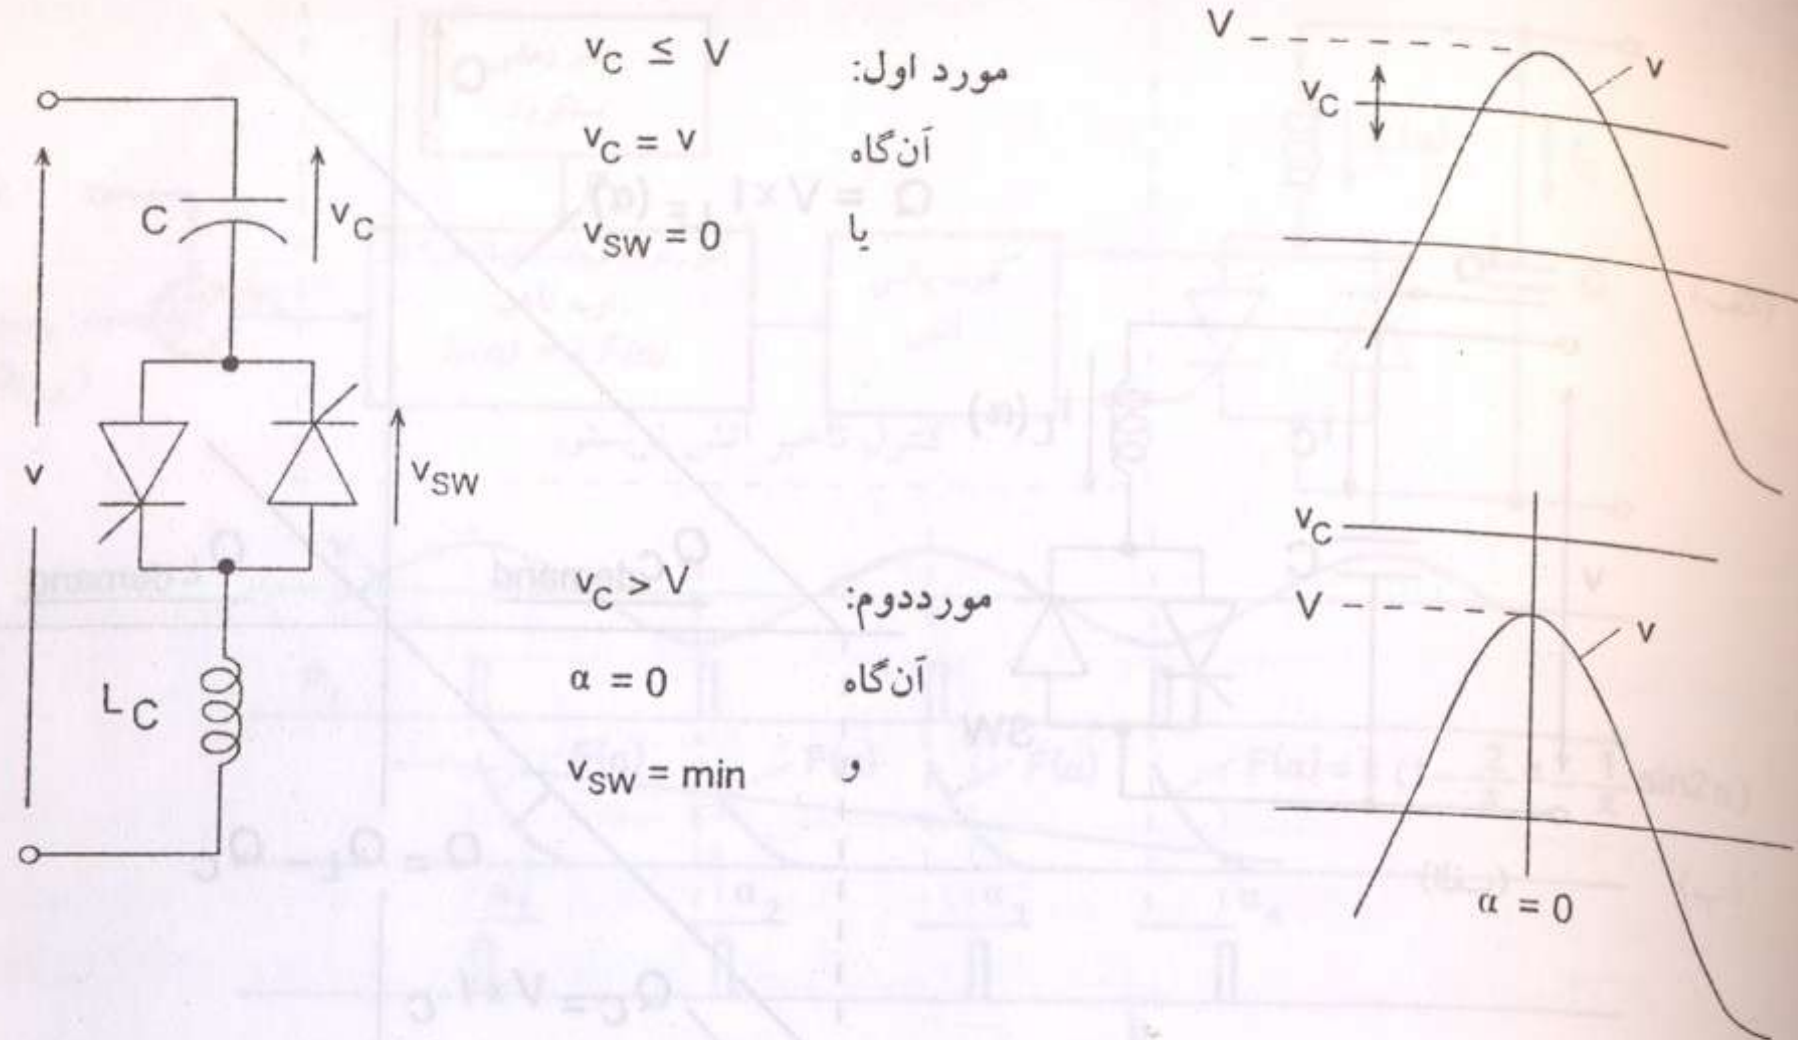 v
C
v_C
v_SW
L_C
مورد اول: v_C ≤ V
آن‌گاه v_C = v
یا v_SW = 0
مورددوم: v_C > V
آن‌گاه α = 0
و v_SW = min
V
v
v_C
v_C
V
v
α = 0